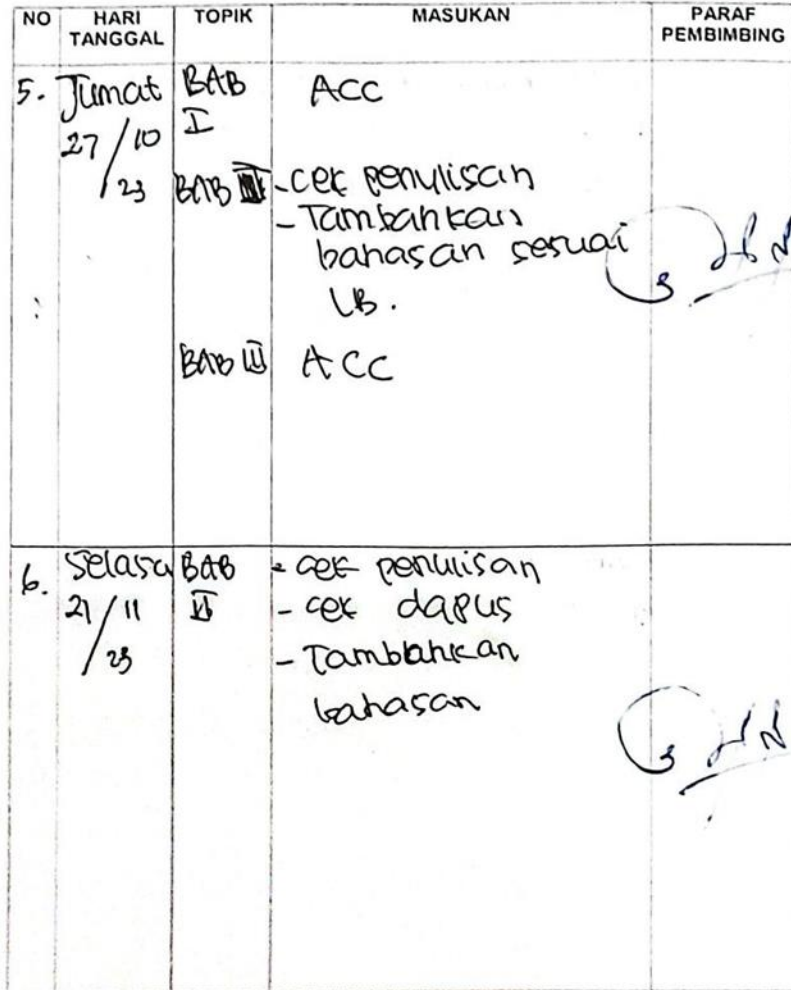 NO HARI TANGGAL TOPIK MASUKAN PARAF PEMBIMBING
5. Jumat BAB ACC
27/10 I
/23 BAB II - cek penulisan
- Tambahkan
bahasan sesuai
LB.
BAB III ACC
6. Selasa BAB - cek penulisan
21/11 II - cek dapus
/23 - Tambahkan
bahasan